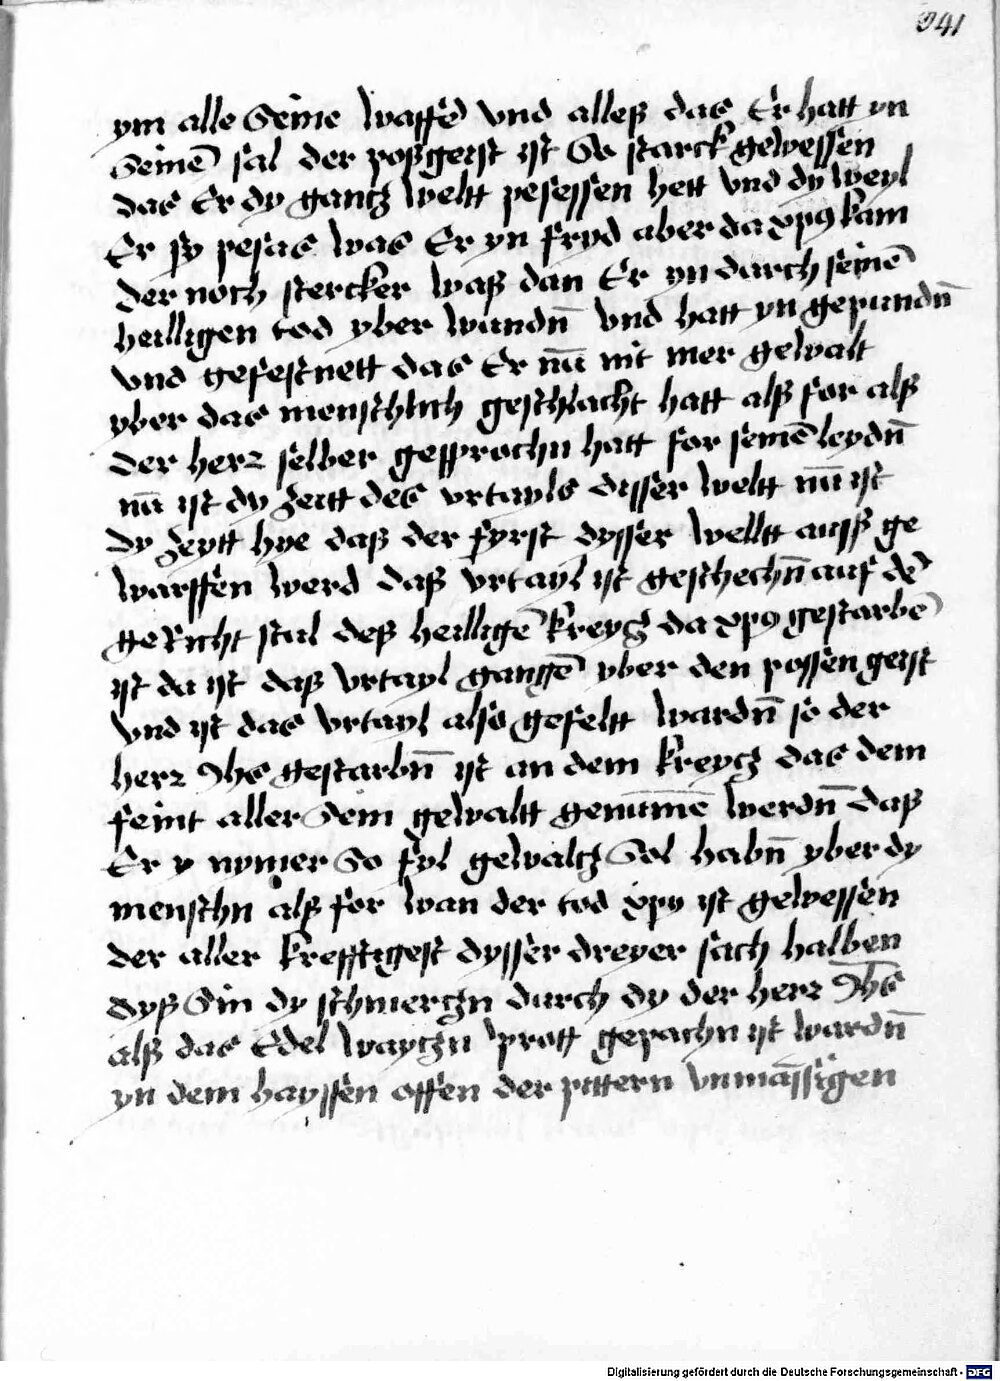 341
ym alle Seine waffē vnd alleß das Er hatt yn
Seinē sal der poßgeist ist So starck gewessen
das Er dy gantz weltt pesessen hett vnd dy weyl
Er sy pesas was Er yn fryd aber da xpꝯ kam
der noch stercker waß dan Er yn darch seinē
heilligen tod yber wundn̄ vnd hatt yn gepundn̄
vnd gefestnett das Er nū nit mer gewalt
yber das menschlich geschlacht hatt alß for alß
der herz selber gesprochn hatt for seinē leydn̄
nū ist dy Zeitt des vrtayls disser weltt nū ist
dy Zeytt hye daß der fyrst dysser welltt auß ge
warffen werd daß vrtayl ist geschechn̄ auf dē
geRicht stul deß heilligē kreyz da xpꝯ gestarbē
ist da ist daß vrtayl gangē yber den possen geist
vnd ist das vrtayl also gefeltt wardn̄ so der
herz Jhs gestarbn̄ ist an dem kreytz das dem
feint aller Sein gewaltt genūmē werdn̄ daß
Er y nymer So fyl gewaltz Sol habn̄ yber dy
menschn alß for wan der tod xpy ist gewessen
der aller krefftigest dysser dreyer sach halben
dyß Sin dy schmerczn durch dy der herz Jhs
alß das Edel waytzn prott gepachn ist wardn̄
yn dem hayssen offen der pittern vnmāssigen
Digitalisierung gefördert durch die Deutsche Forschungsgemeinschaft - DFG